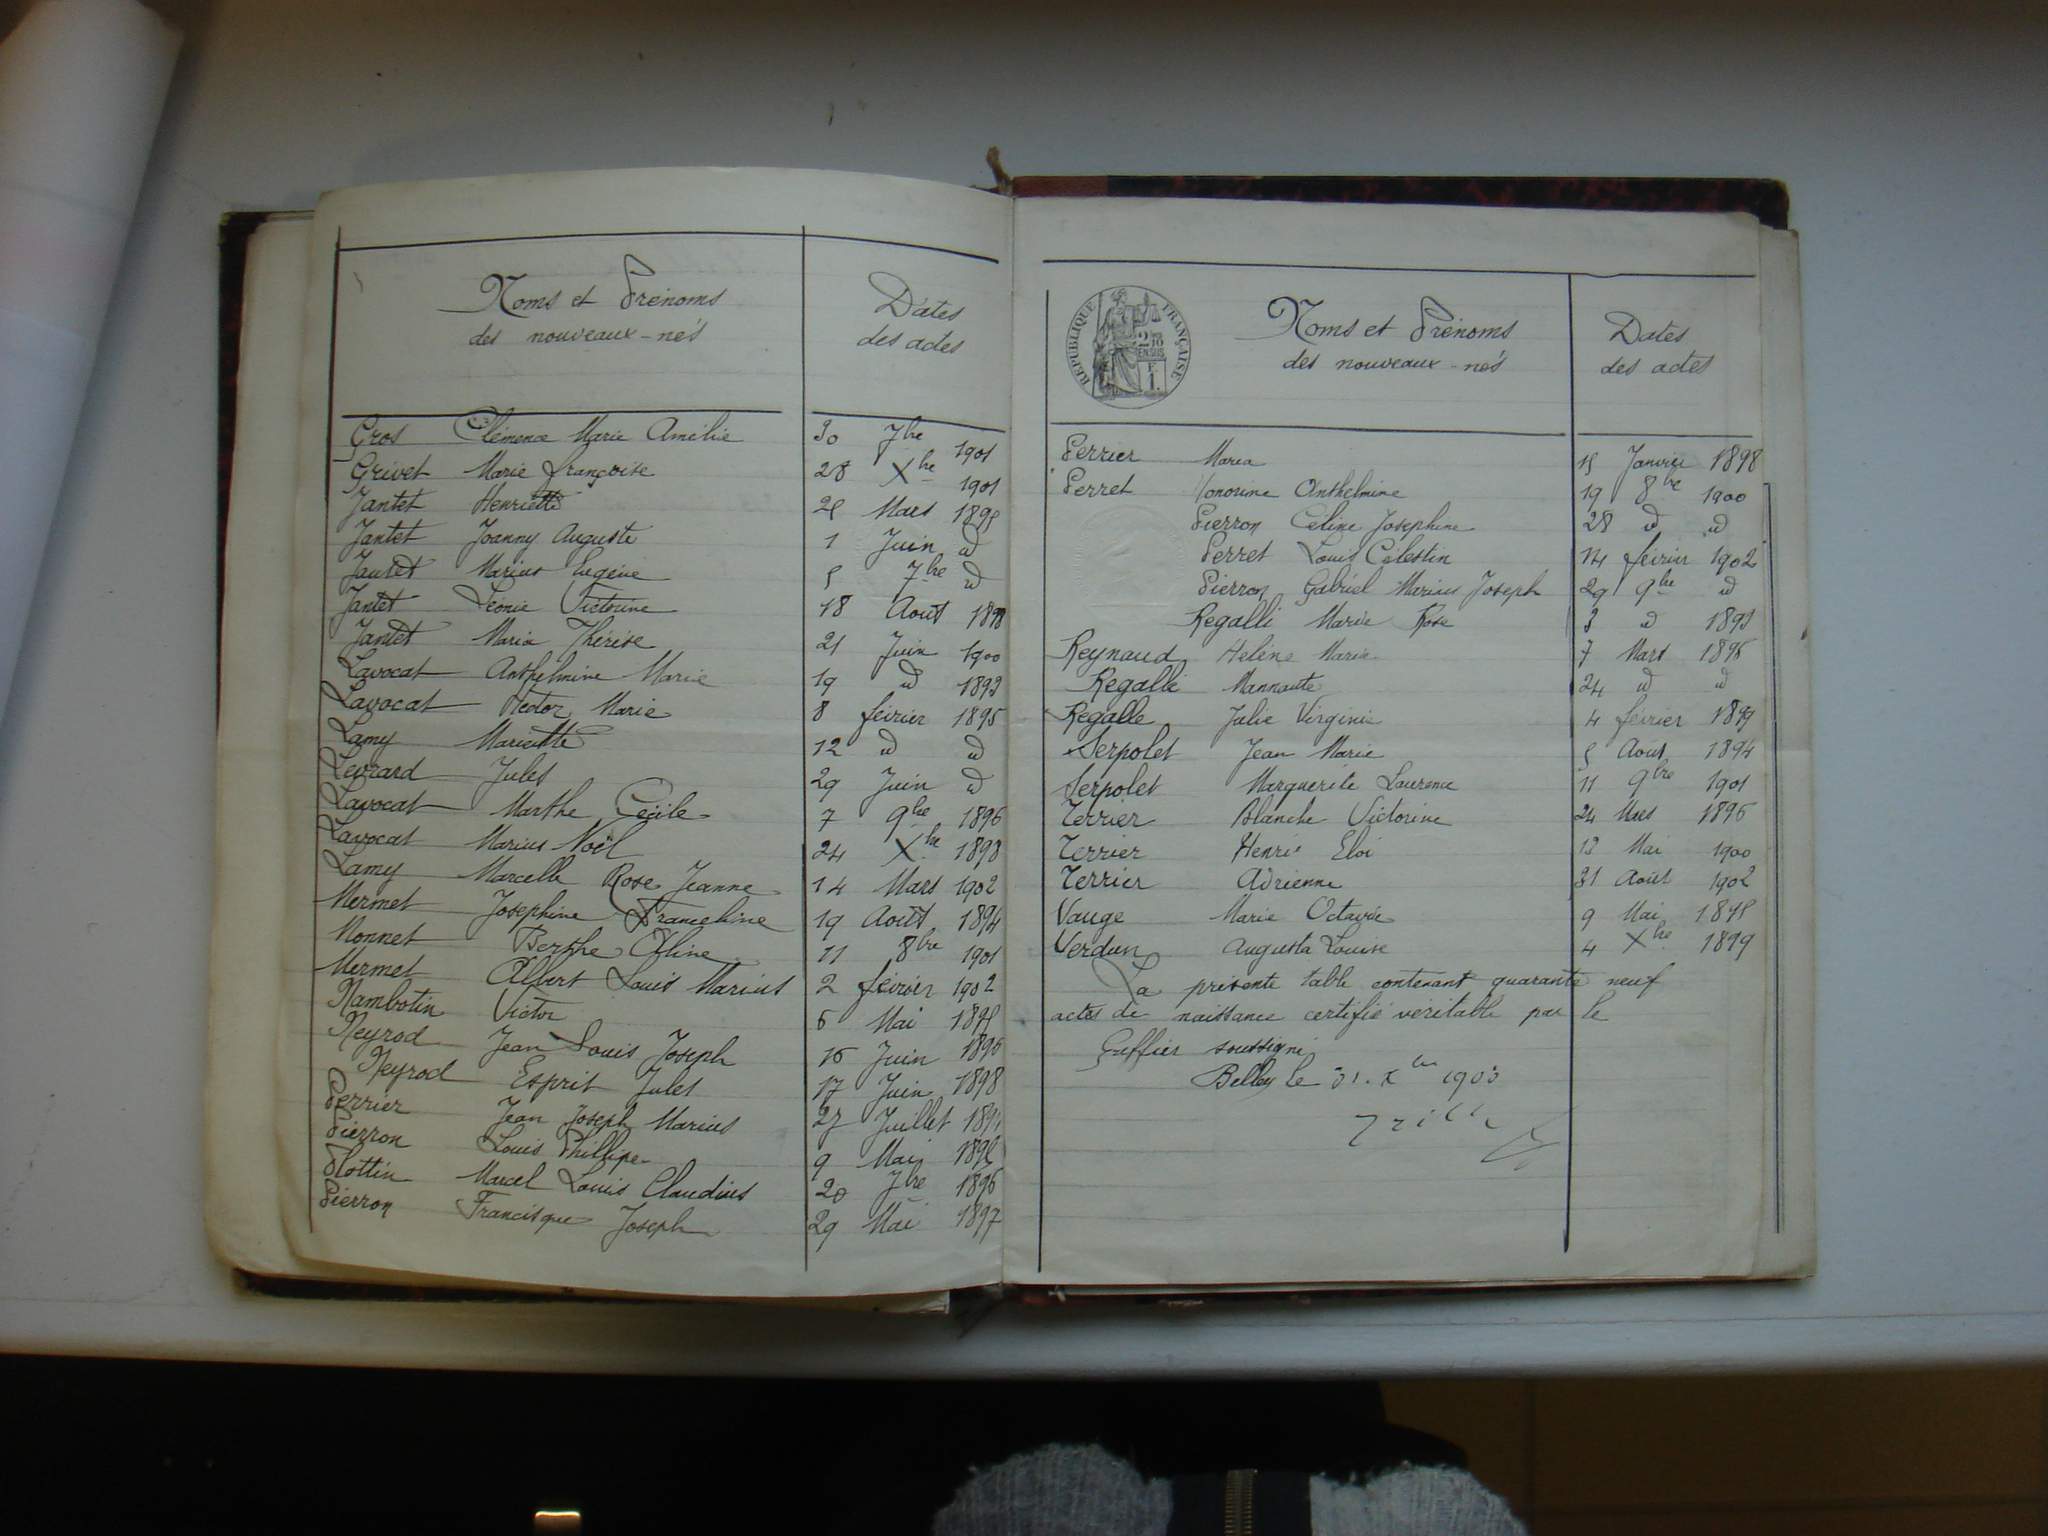 Noms et Prénoms
des nouveaux-nés
Dates
des actes
Gros Clémence Marie Amélie 30 7bre 1901
Grivet Marie françoise 28 Xbre 1901
Jantet Henriette 25 Mars 1895
Jantet Joanny Auguste 1 Juin d
Jantet Marius Eugène 5 7bre d
Jantet Léonie Victorine 18 Août 1898
Jantet Maria Thérèse 21 Juin 1900
Lavocat Anthelmine Marie 19 d 1893
Lavocat Hector Marie 8 février 1895
Lamy Mariette 12 d d
Levrard Jules 29 Juin d
Lavocat Marthe Cécile 7 9bre 1896
Lavocat Marius Noël 24 Xbre 1898
Lamy Marcelle Rose Jeanne 14 Mars 1902
Mermet Joséphine Franceline 19 Août 1894
Monnet Berthe Céline 11 8bre 1901
Mermet Albert Louis Marius 2 février 1902
Nambotin Victor 6 Mai 1895
Neyrod Jean Louis Joseph 16 Juin 1896
Neyrod Esprit Jules 17 Juin 1898
Perrier Jean Joseph Marius 27 Juillet
Pierron Louis Phillipe 9 Mai
Plottin Marcel Louis Claudius 20 7bre 1896
Pierron Francisque Joseph 29 Mai 1897
RÉPUBLIQUE FRANÇAISE
Noms et Prénoms
des nouveaux-nés
Dates
des actes
Perrier Maria 15 Janvier 1898
Perret Honorine Anthelmine 19 8bre 1900
Pierron Céline Joséphine 28 d d
Perret Louis Célestin 14 février 1902
Pierron Gabriel Marius Joseph 29 9bre d
Regalli Marie Rose 3 d 1893
Reynaud Hélène Marie 7 Mars 1896
Regalle 24 d d
Regalle Julie Virginie 4 février 1899
Serpolet Jean Marie 5 Août 1894
Serpolet Marguerite Laurence 11 9bre 1901
Terrier Blanche Victorine 24 Mars 1896
Terrier Henri Eloi 13 Mai 1900
Terrier Adrienne 31 Août 1902
Vauge Marie Octavie 9 Mai 1895
Verdun Augusta Louise 4 Xbre 1899
La présente table contenant quarante neuf
actes de naissance certifié véritable par le
Greffier soussigné
Belley le 31 Xbre 1903